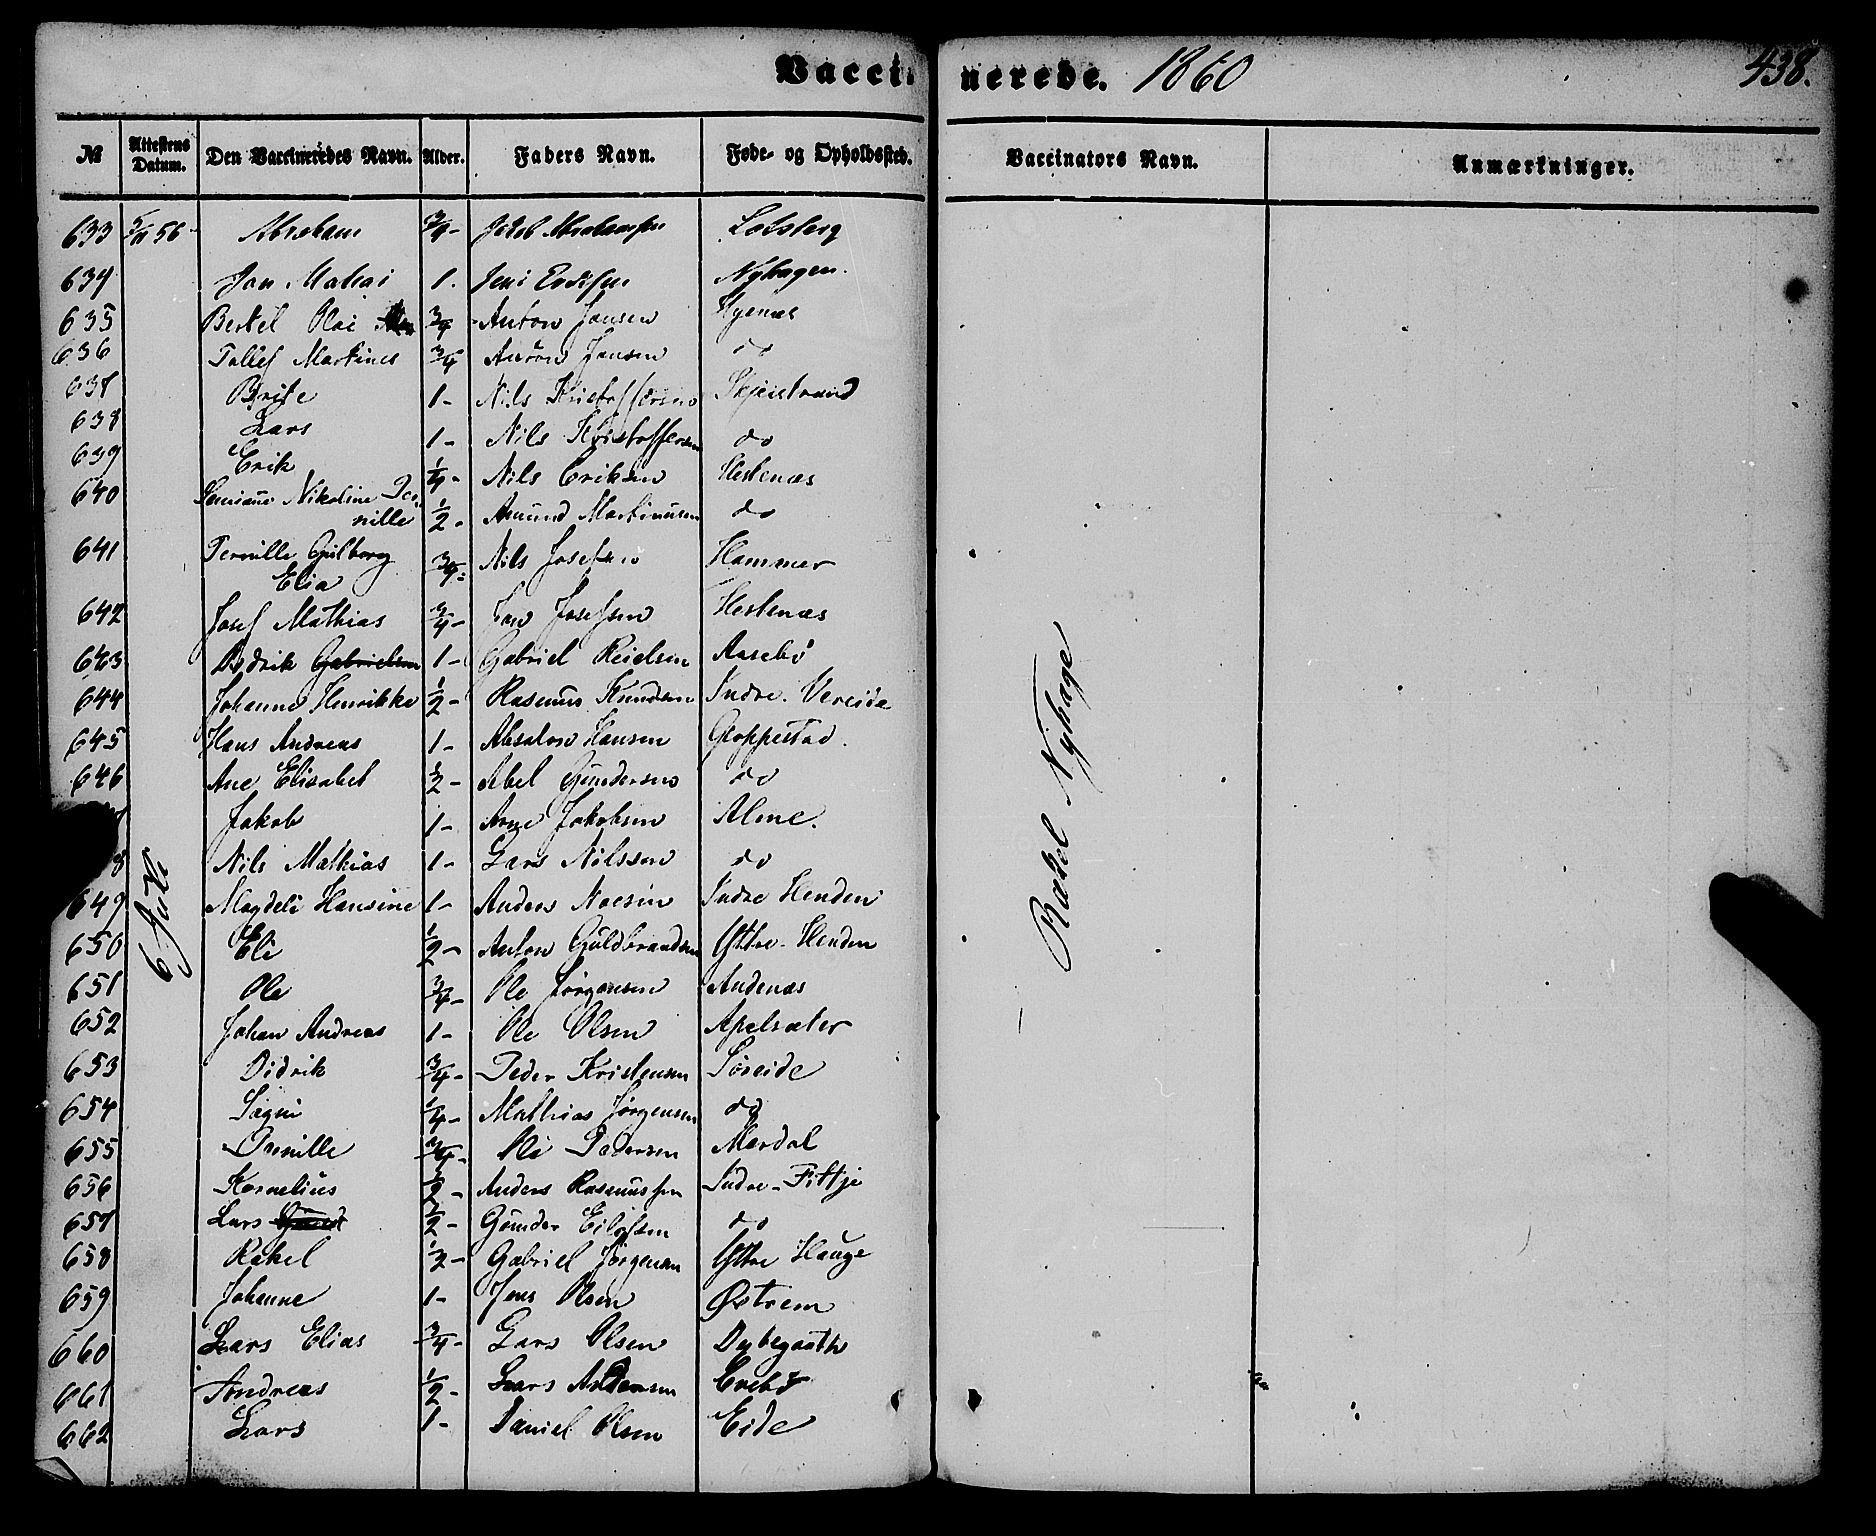 Vaccinerede. 1860
438.
№ Attestens Datum. Den Vaccineredes Navn. Alder. Faders Navn. Føde- og Opholdssted. Vaccinators Navn. Anmærkninger.
633 56 Abraham 3/4 - Jakob Abrahamsen Lotsberg
634 Jon Mathai 1. Jens Nyhagen.
635 Bertel Olai 3/4 - Anton Jansen Hyenæs
636 Tollef Martines 3/4 Anton Jansen do
637 Brite 1 - Nils Kristoffersen Skjeistrand
638 Lars 1 - Nils Kristoffersen do
639 Erik 1/4 - Nils Eriksen Hestenæs
640 Nikoline Pernille 1/2 - Amund Martinusen do
641 Pernille Gulborg Elia 3/4 - Nils Josefsen Hammer
642 Josef Mathias 3/4 - Jon Josefsen Hestenæs
643 Didrik Gabrielsen 1 - Gabriel Reielsen Aasebø
644 Johanne Henrikke 1/2 - Rasmus Knudsen Indre Vereide
645 Hans Andreas 1 - Absalon Hansen Gloppestad.
646 Ane Elisabet 1/2 - Abel Gundersen do
Jakob 1 - Arne Jakobsen Alme.
8 Nils Mathias 1 - Lars Nilssen do
649 Magdeli Hansine 1 - Anders Indre Henden
650 Eli 1/2 - Anton Guldbrandsen Yttre Henden
651 Ole 3/4 - Ole Jørgensen Andenæs
652 Johan Andreas 1 - Ole Olsen Apelsæter
653 Didrik 3/4 - Peder Kristensen Søreide
654 1/4 - Mathias Jørgensen do
655 Pernille 3/4 - Ole Pedersen Mardal
656 Kornelius 1/2 - Anders Rasmussen Indre Fittje
657 Lars 1/2 - Gunder Eilofsen do
658 Rakel 1/2 - Gabriel Jørgensen Yttre Hauge
659 Johanne 1 - Jens Olsen Østrem
660 Lars Elias 3/4 - Lars Olsen Dybegaath
661 Andreas 1/2 - Lars Andersen Evebø
662 Lars 1 - Daniel Olsen Eide
6 Juli
Rakel Nyhage